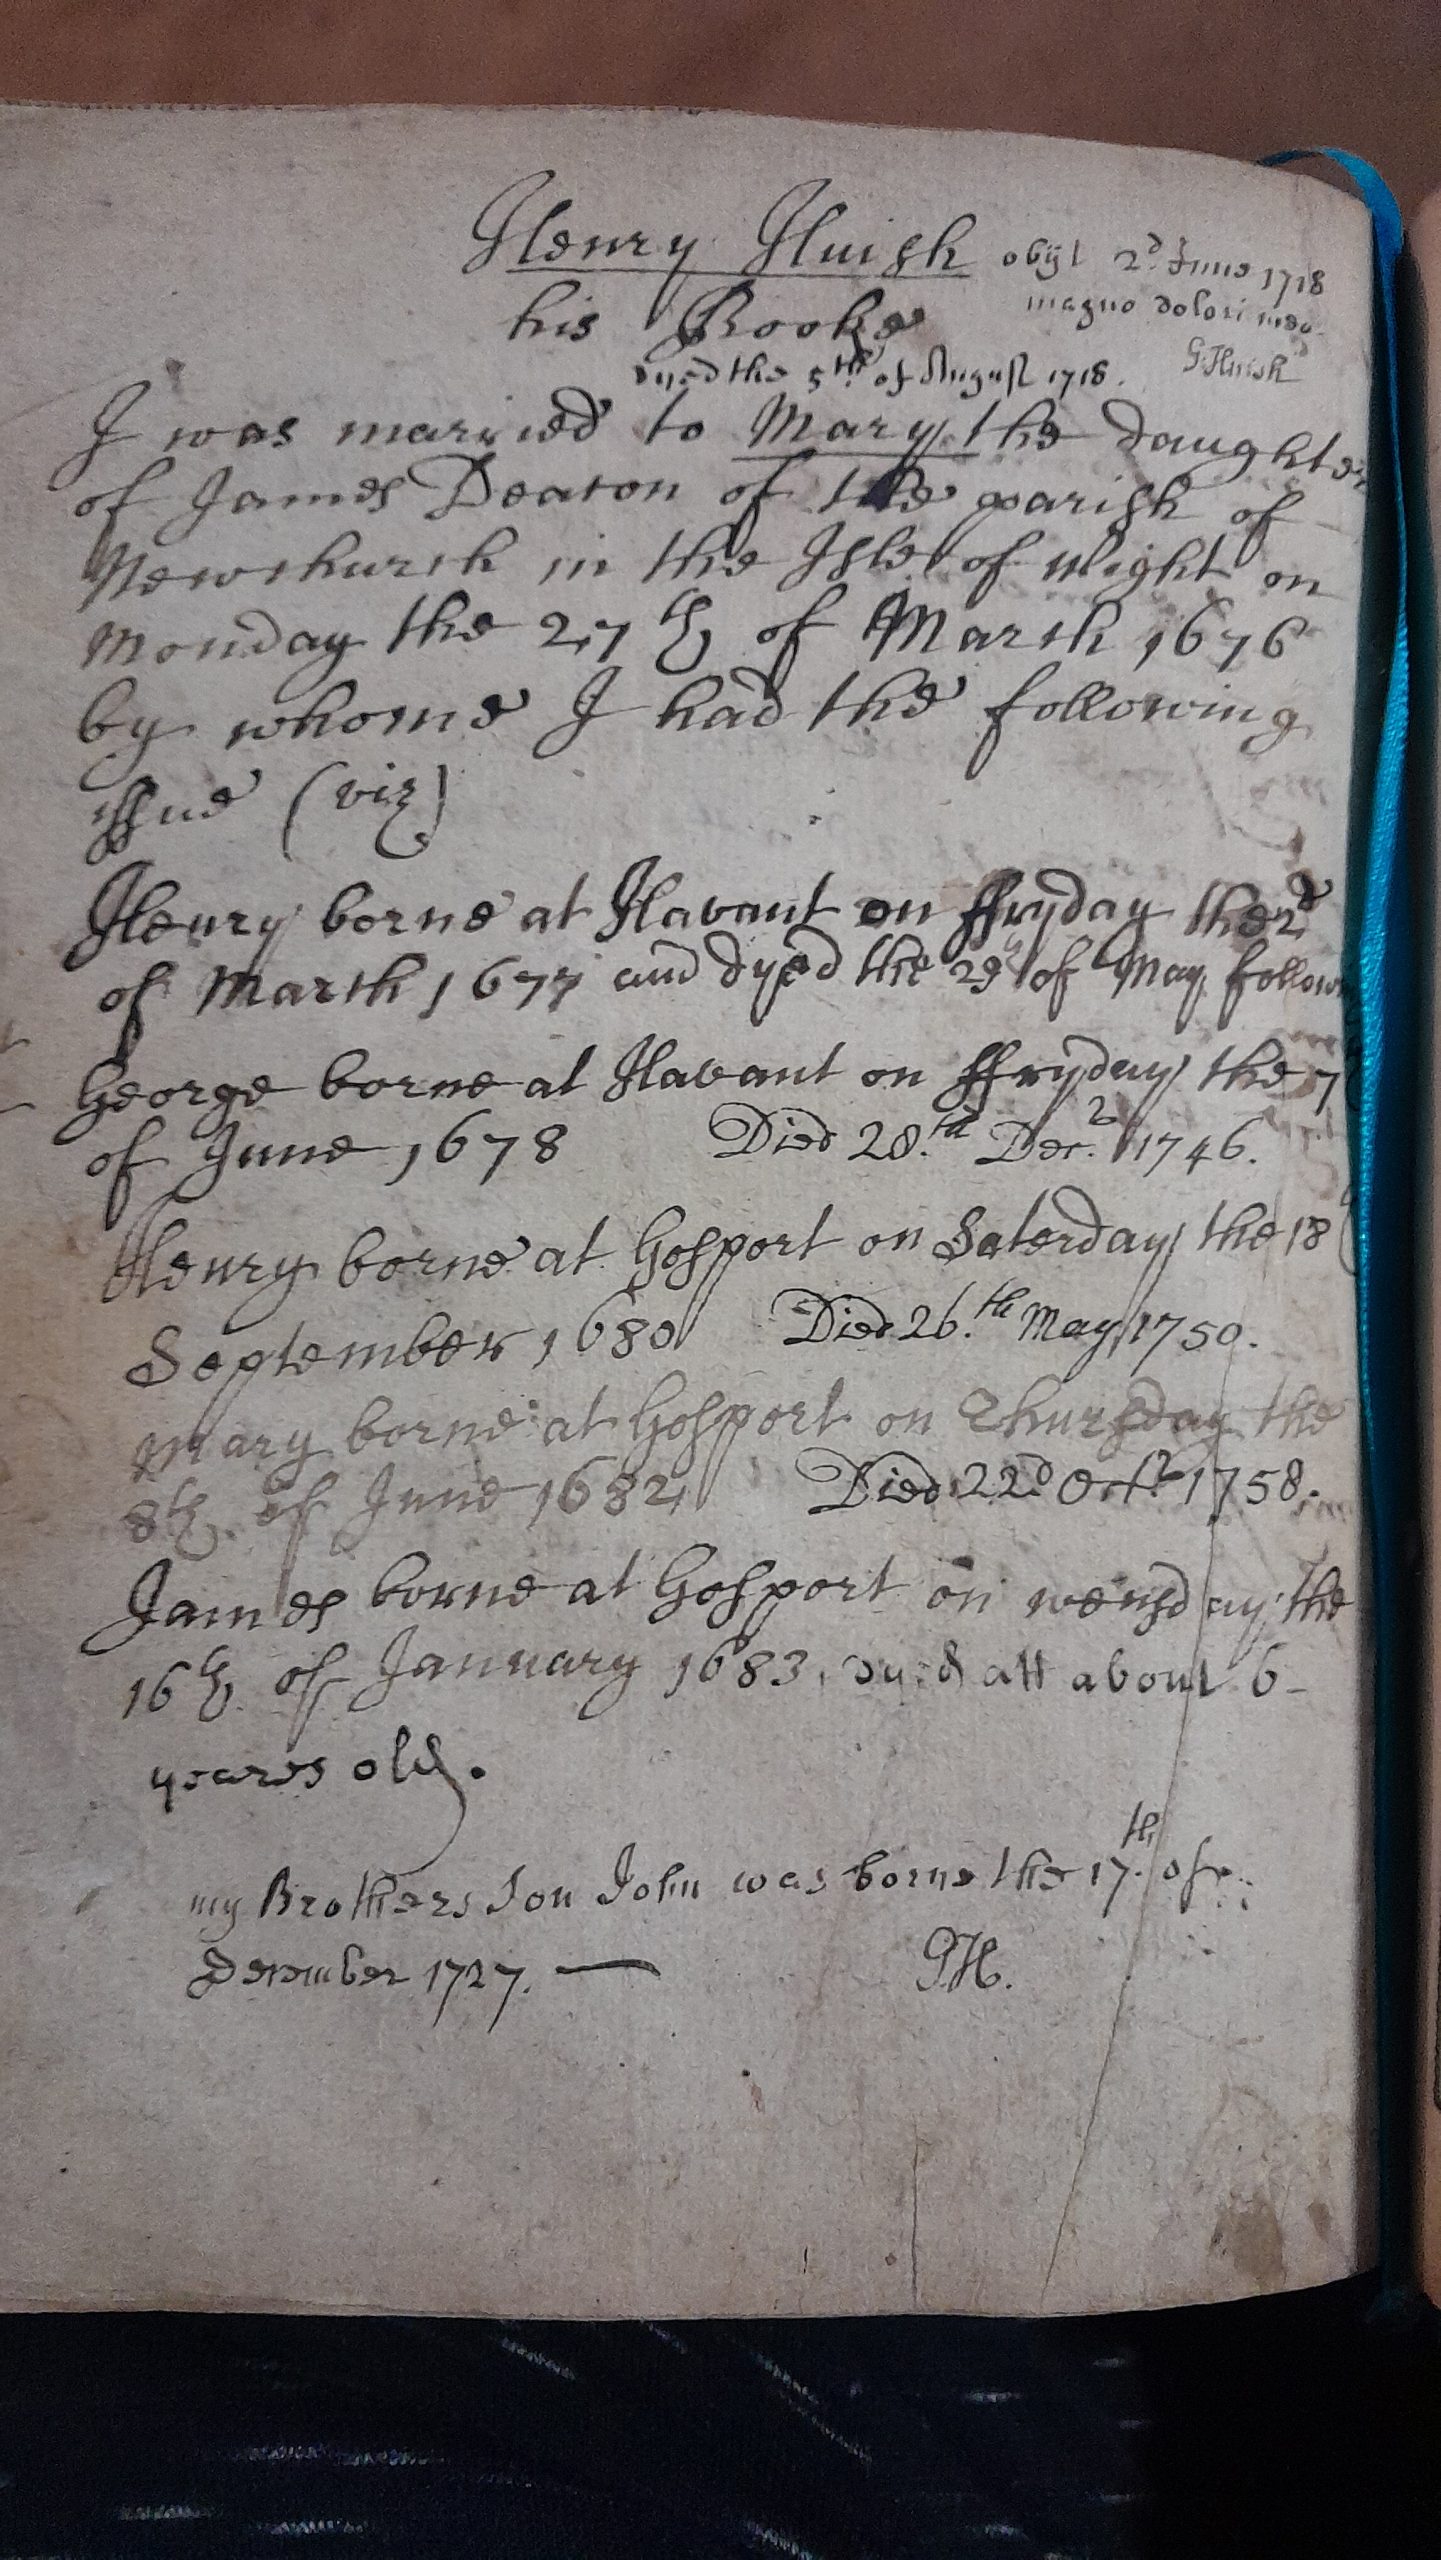 Henry Huish obijt 2d June 1718
his Booke magno dolori meo
G: Huish
dyed the 5th of August 1718.
I was maried to Mary the daughter
of James Deacon of the parish of
Newchurch in the Isle of Wight on
Monday the 27th of March 1676
by whome I had the following
issue (viz)
Henry borne at Havant on ffryday the 2d
of March 1677 and dyed the 29 of May follow
George borne at Havant on ffryday the 7
of June 1678 Died 28.th Decr. 1746.
Henry borne at Gosport on Saterday the 18
September 1680 Died 26.th May 1750.
Mary borne at Gosport on Thursday the
8th of June 1682 Died 22d Octr. 1758.
James borne at Gosport on wensday the
16th of January 1683, dyed att about 6
yeares old.
my Brothers Son John was borne the 17.th of
December 1727. — G.H.